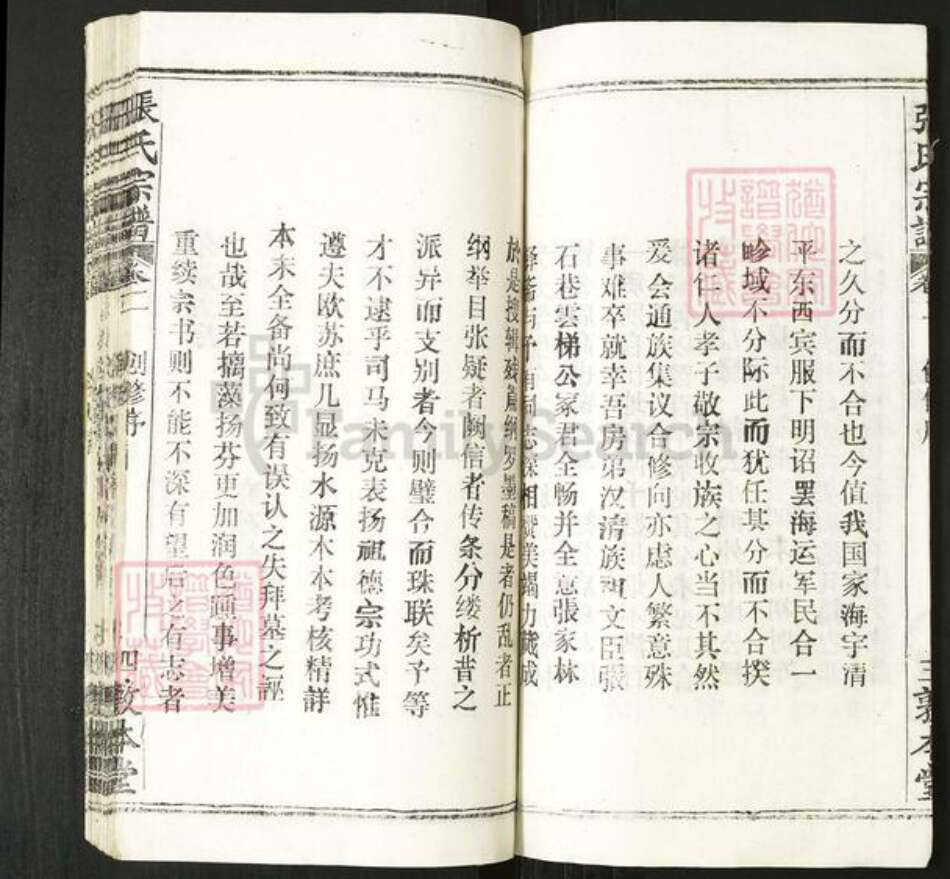 張氏宗譜
卷
三
敦本堂
之久分而不合也今值我国家海宇清
平东西宾服下明诏罢海运军民合一
畛域不分际此而犹任其分而不合揆
诸仁人孝子敬宗收族之心当不其然
爰会通族集议合修向亦虑人繁意殊
事难卒就幸吾房弟汉清族文臣張
石巷雲梯公冢君全畅并全意張家林
有同志相贊美竭力裁成
於是搜辑稿是者仍乱者正
纲举目张疑者阙信者传条分缕析昔之
派异而支别者今则璧合而珠联矣予等
才不逮乎司马未克表扬祖德宗功式惟
遵夫欧苏庶几显扬水源木本考核精詳
本末全备尚何致有误认之失拜墓之誣
也哉至若摛藻扬芬更加润色踵事增美
重续宗书则不能不深有望后之有志者
張氏宗譜
卷二
创修序
四
敦本堂
FamilySearch